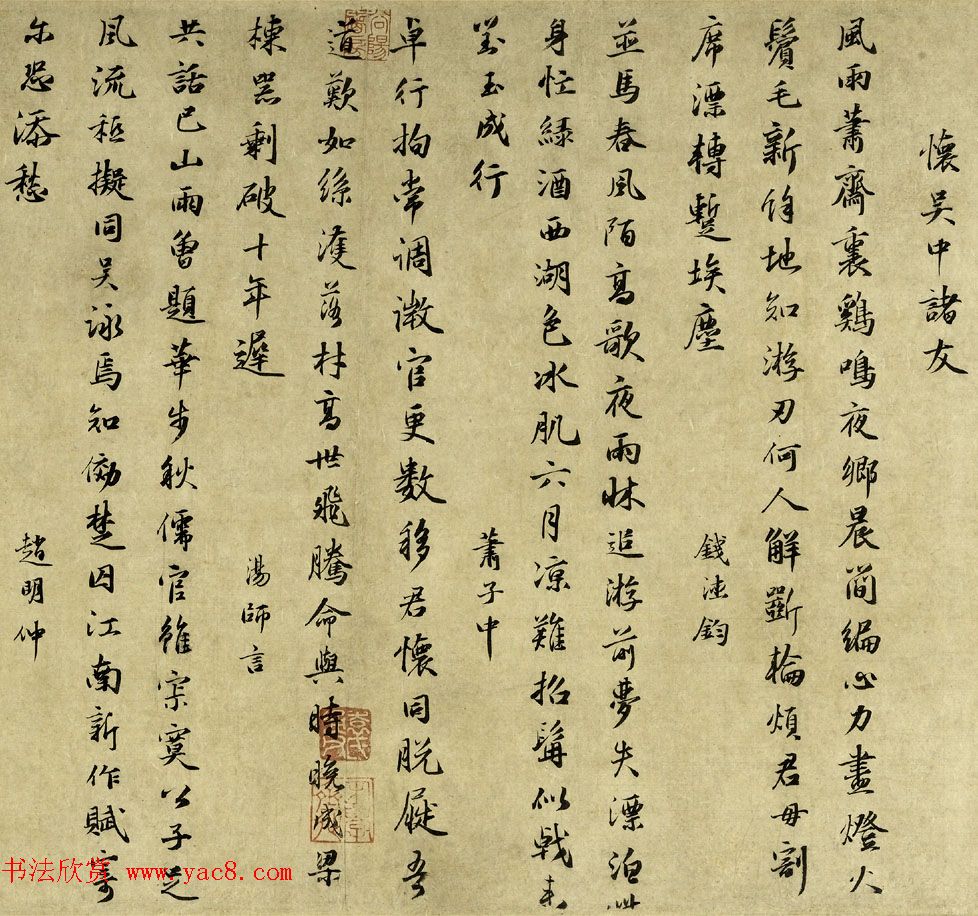 懷吳中諸友
風雨蕭齋裏鷄鳴夜鄉晨簡編心力盡燈火
鬢毛新餘地知游刃何人解斲輪煩君毋割
席漂轉蹔埃塵
錢漣鈞
並馬春風陌高歌夜雨牀追游前夢失漂泊此
身忙綠酒西湖色冰肌六月凉難招髯似戟
玉成行
蕭子中
卓行拘常調微官更數移君懷同脫屣吾
道歎如絲濩落材高世飛騰命與時晚成梁
棟器剩破十年遲
湯師言
共話巴山雨曾題華步秋儒官雖寂寞公子足
風流秪擬同吳詠焉知効楚囚江南新作賦寄
尔恐添愁
趙明仲
书法欣赏 www.yac8.com